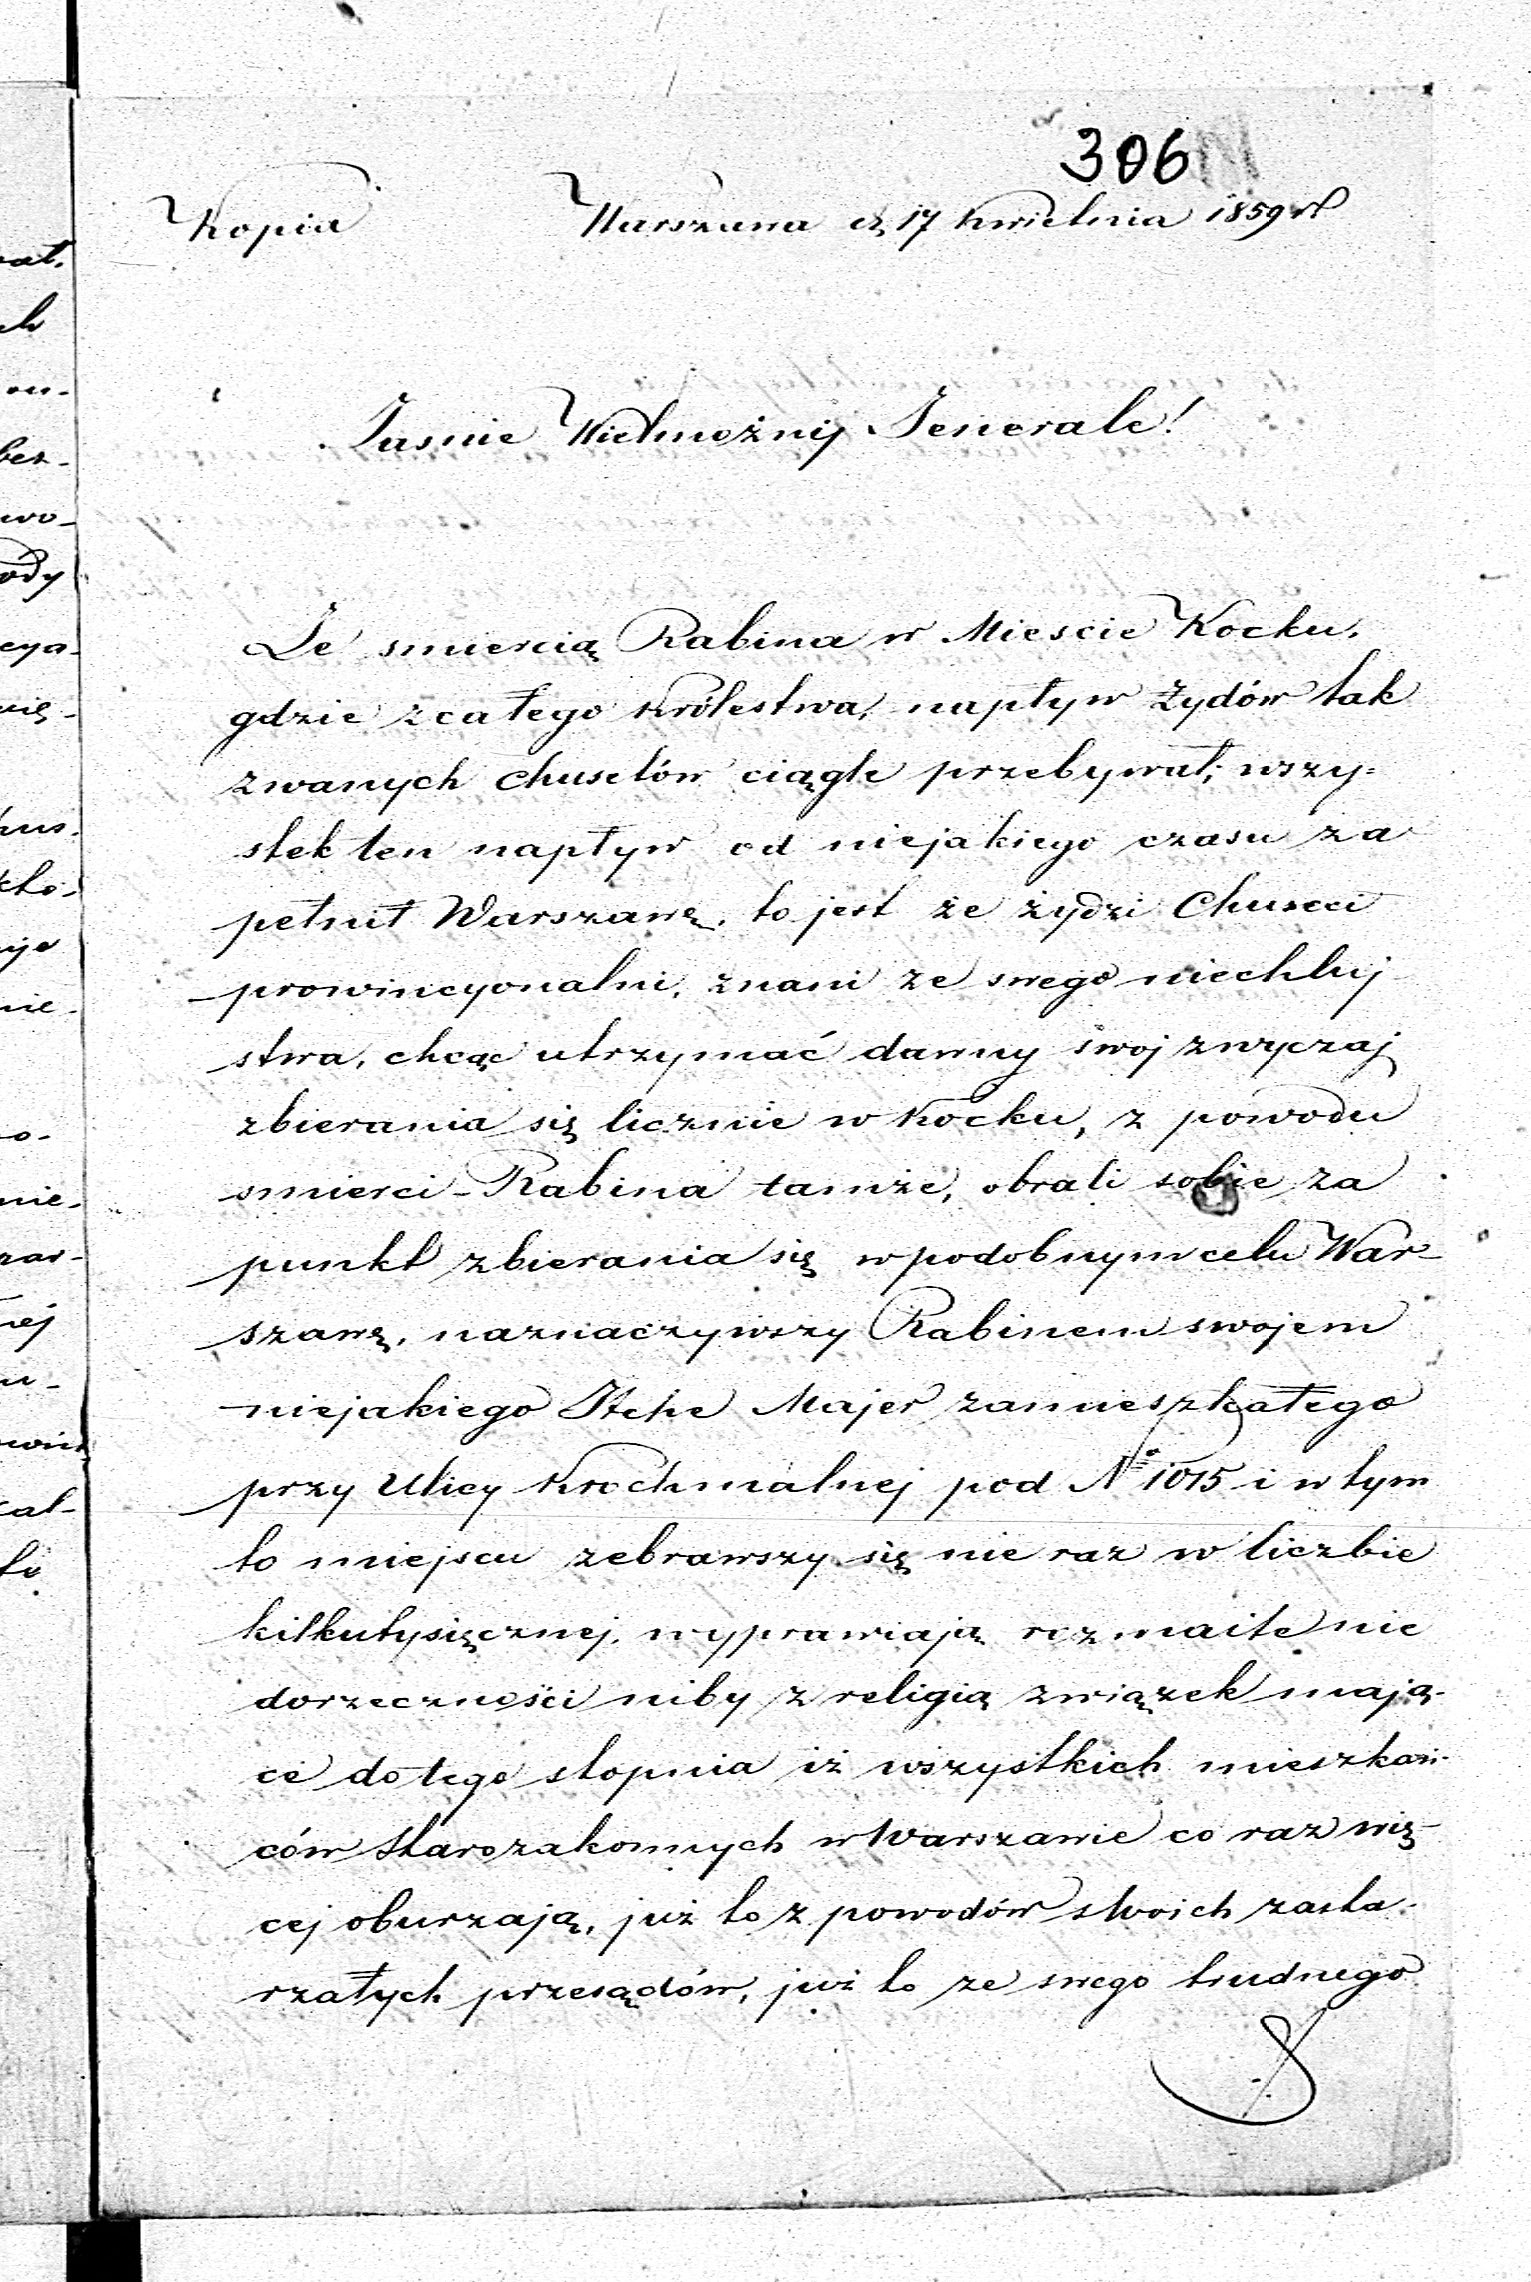 306
Kopia Warszawa d. 17 Kwietnia 1859 r.
Jasnie Wielmożny Jenerale!
Ze smiercią Rabina w Miescie Kocku,
gdzie z całego Królestwa, napływ żydów tak
zwanych Chusetów ciągle przebywał; wszy=
stek ten napływ od niejakiego czasu za
pełnił Warszawę, to jest że żydzi Chuseci
prowincyonalni, znani ze swego niechluj
stwa, chcąc utrzymać dawny swoj zwyczaj
zbierania się licznie w Kocku, z powodu
smierci Rabina tamże, obrali sobie za
punkt zbierania się w podobnym celu War-
szawę, naznaczywszy Rabinem swojem
niejakiego Itche Majer zamieszkałego
przy Ulicy Krochmalnej pod N 1015 i w tym
to miejscu zebrawszy się nie raz w liczbie
kilkutysięcznej, wyprawiają rozmaite nie
dorzeczności niby z religią związek mają-
ce do tego stopnia iż wszystkich mieszkań-
ców Starozakonnych w Warszawie co raz wię-
cej oburzają, już to z powodów swoich zasta-
rzałych przesądów, już to ze swego trudnego
at.
ch
ber-
wo-
ody
nie-
nej
kal-